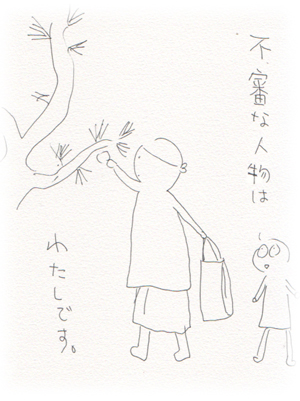 不審な人物は
わたしです。